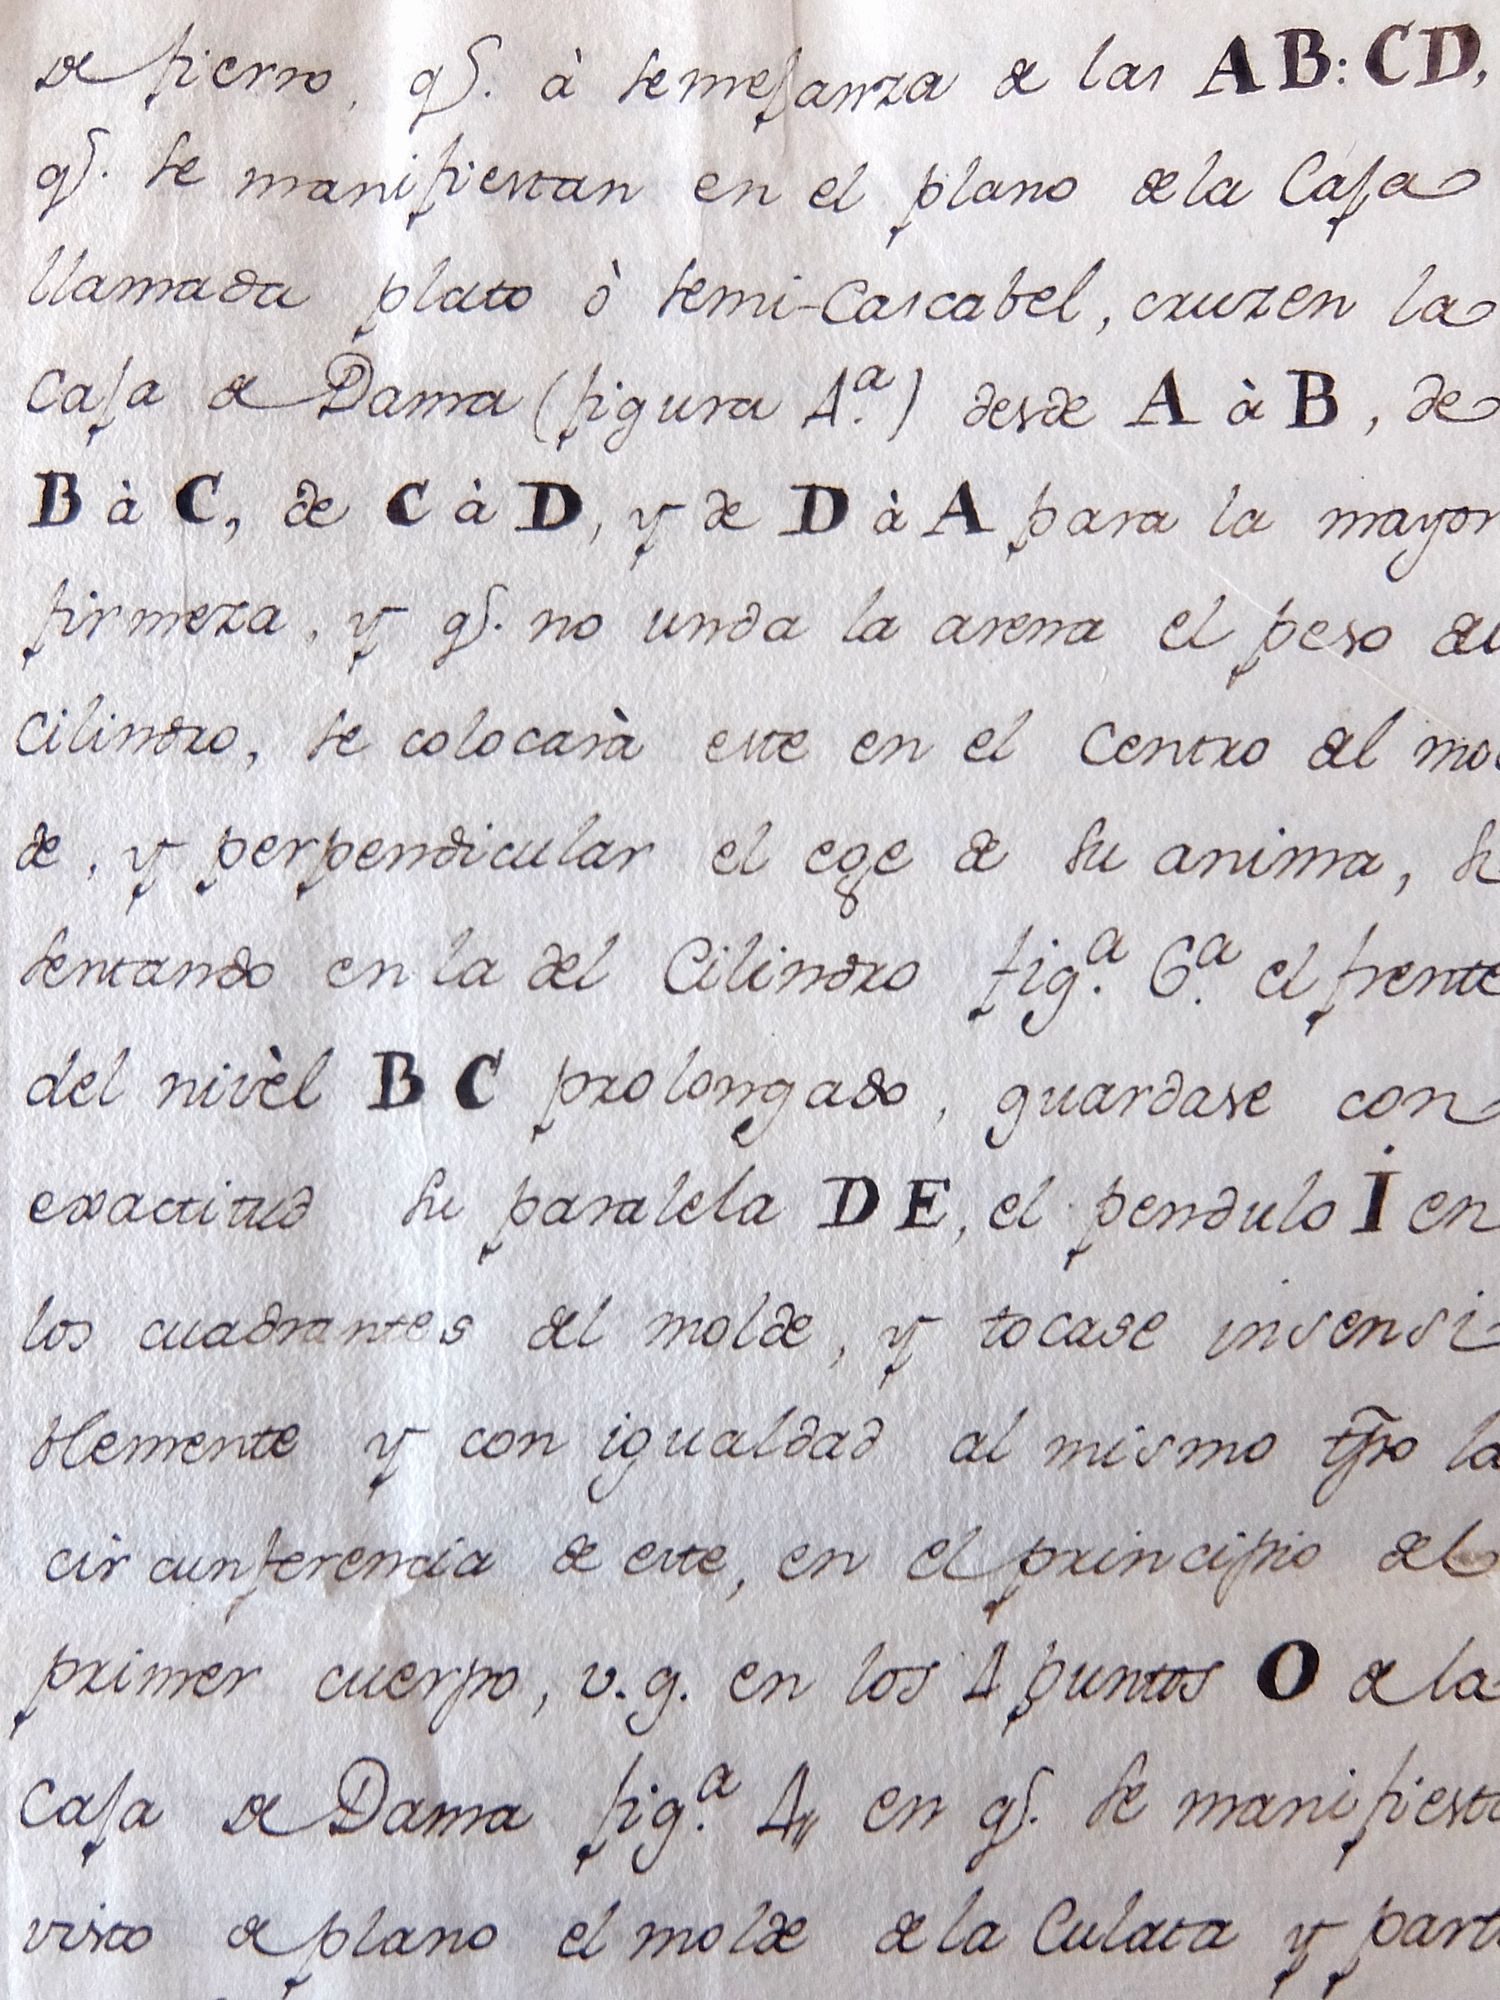 de fierro, qᵉ. à semejanza de las AB: CD,
qᵉ. se manifiestan en el plano de la Caja
llamada plato ò semi-Cascabel, cruzen la
Caja de Dama (figura 4.ª) desde A à B, de
B à C, de C à D, y de D à A para la mayor
firmeza, y qᵉ. no unda la arena el peso del
Cilindro, se colocarà este en el Centro del mol
de, y perpendicular el ege de su anima, se
sentando en la del Cilindro fig.ª 6.ª el frente
del nivèl B C prolongado, guardase con
exactitud su paralela D E, el pendulo I en
los cuadrantes del molde, y tocase insensi
blemente y con igualdad al mismo tp̃o la
circunferencia de este, en el principio del
primer cuerpo, v.g. en los 4 puntos O de la
Caja de Dama fig.ª 4,, en qᵉ. se manifiesta
visto de plano el molde de la Culata y part